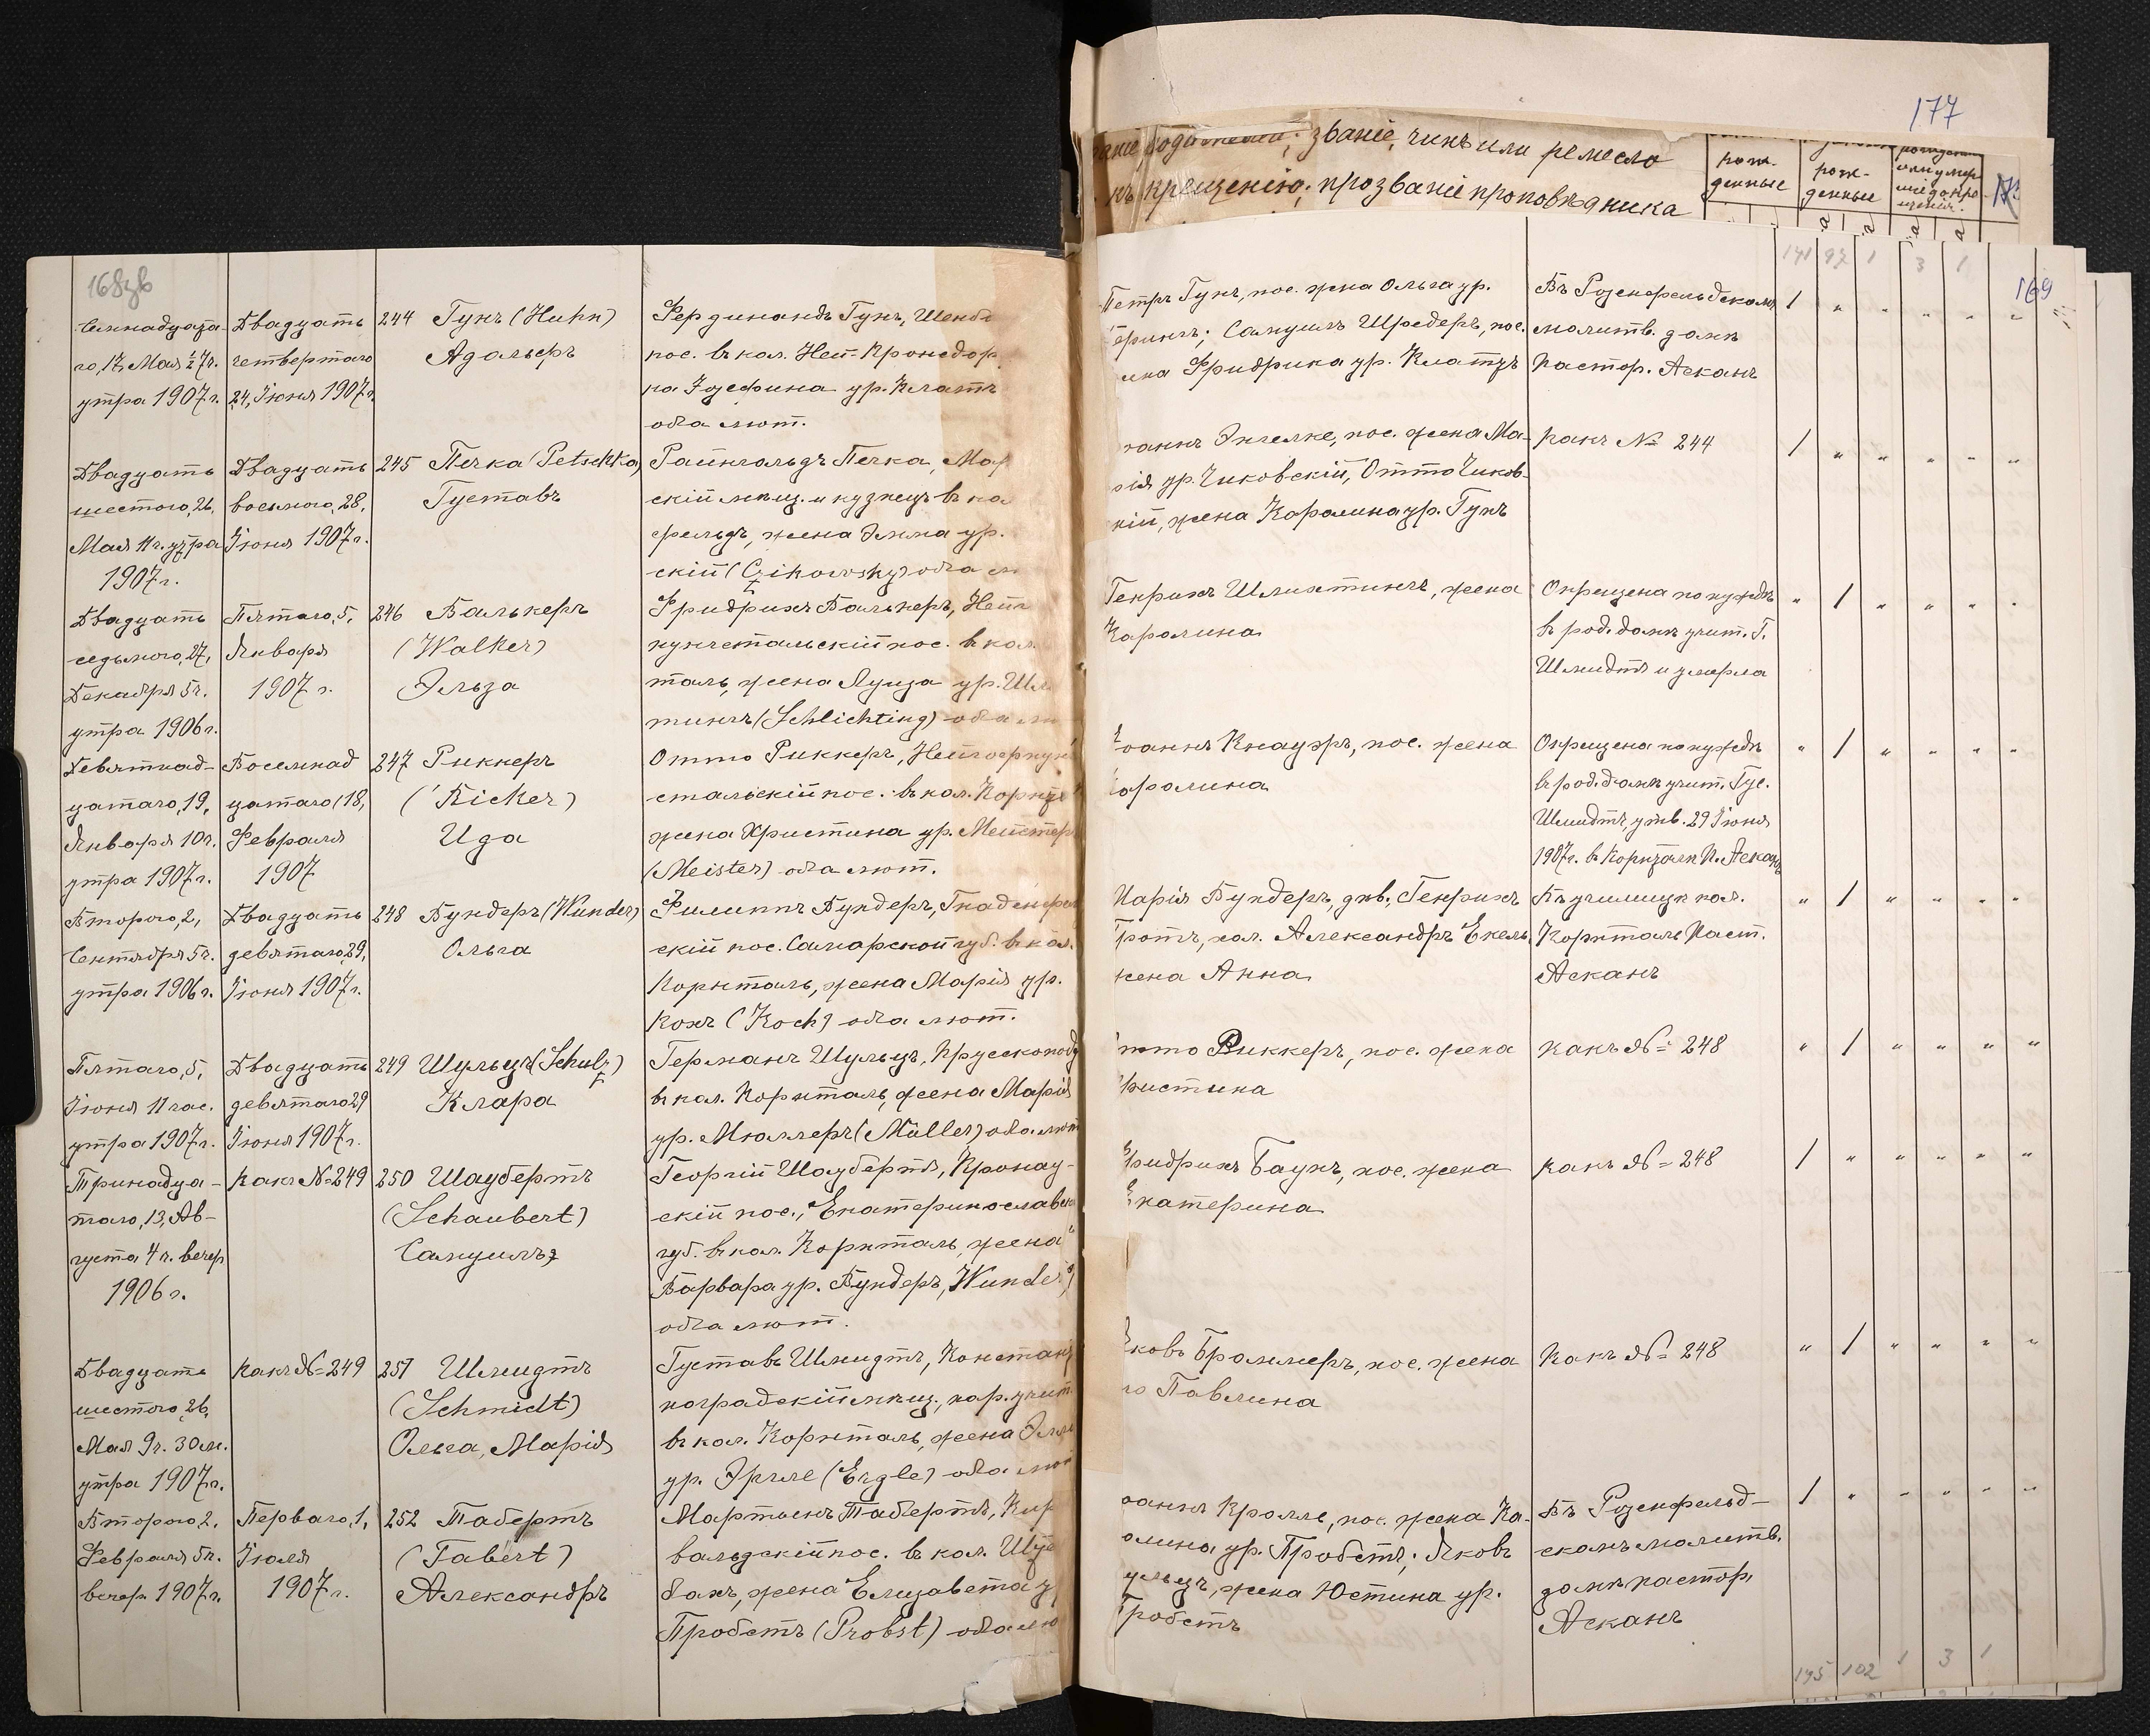 177
званіе, чинъ или ремесло
къ крещенію; прозваніе проповѣдника
рож-
денные
рож-
денные
169
141 97 1 3 1
го, 17, Мая ½7 ч.
утра 1907 г.
Двадцать
четвертаго
24, Іюня 1907 г.
244 Гунъ (Huhn)
Адольфъ
Фердинандъ Гунъ,
пос. въ кол. Ней-Кронсдор
на Іозефина ур. Клатт
оба лют.
Петръ Гунъ, пос. жена Ольга ур.
Самуилъ Шредеръ, пос.
Фридрика ур. Клаттъ
Въ Розенфельдскомъ
молитв. домѣ
Пастор. Асканъ
1 „ „ „ „ „
Двадцать
шестого, 26,
Мая 11 ч. утра
1907 г.
Двадцать
восьмого, 28,
Іюня 1907 г.
245 Печка (Petschka)
Густавъ
Рейнгольдъ Печка, Мар
скій мѣщ. и кузнецъ въ ко
фельдъ, жена Эмма ур.
скій (Czikowsky) оба л
оаннъ Энгелке, пос. жена Ма-
рія ур. Чиковскій, Отто Чиков-
кій, жена Каролина ур. Гунъ
какъ № 244
1 „ „ „ „ „
Двадцать
седьмого, 27,
Декабря 5 ч.
утра 1906 г.
Пятаго, 5,
Января
1907 г.
246 Валькеръ
(Walker)
Эльза
Фридрихъ Валькеръ, Нейг
пос. въ кол.
таль, жена Луиза ур. Шли
тингъ (Schlichting) оба лю
Генрихъ Шлихтингъ, жена
Каролина
Окрещена по нуждѣ
въ род. домѣ учит. Г.
Шмидтъ и умерла
„ 1 „ „ „ „
Девятнад-
цатаго, 19,
Января 10 ч.
утра 1907 г.
Восемнад
цатаго (18,
Февраля
1907
247 Риккеръ
(Ricker)
Ида
Отто Риккеръ,
стальскій пос. въ кол. Корнт
жена Христина ур. Мейстер
(Meister) оба лют.
оаннъ Кнауэръ, пос. жена
аролина
Окрещена по нуждѣ
въ род. домѣ учит. Гус.
Шмидтъ, утв. 29 Іюня
1907 г. въ Корнталѣ П. Асканъ
„ 1 „ „ „ „
Второго, 2,
Сентября 5 ч.
утра 1906 г.
Двадцать
девятаго, 29,
Іюня 1907 г.
248 Вундеръ (Wunder)
Ольга
Филиппъ Вундеръ, Гнаденфел
скій пос. Самарской губ. въ кол.
Корнталь, жена Марія ур.
Кохъ (Koch) оба лют.
Марія Вундеръ, дѣв., Генрихъ
Гротъ, хол. Александръ Екель,
жена Анна
Въ училищѣ кол.
Корнталь Паст.
Асканъ
„ 1 „ „ „ „
Пятаго, 5,
Іюня 11 час.
утра 1907 г.
Двадцать
девятаго 29
Іюня 1907 г.
249 Шульцъ (Schulz)
Клара
Германъ Шульцъ, Прусскопод
въ кол. Корнталь, жена Марія
ур. Мюллеръ (Müller) оба лют
тто Риккеръ, пос. жена
ристина
какъ № 248
„ 1 „ „ „ „
Тринадца-
таго, 13, Ав-
густа 4 ч. вечер
1906 г.
Какъ № 249
250 Шаубертъ
(Schaubert)
Самуилъ
Георгій Шаубертъ, Кронау-
скій пос., Екатеринославск
губ. въ кол. Корнталь, жена
Варвара ур. Вундеръ, Wunder)
оба лют.
Фридрихъ Баунъ, пос. жена
Екатерина
какъ № 248
1 „ „ „ „ „
Двадцать
шестого 26,
Мая 9 ч. 30 м.
утра 1907 г.
Какъ № 249
251 Шмидтъ
(Schmidt)
Ольга, Марія
Густавъ Шмидтъ, Констант
ноградскій мѣщ., нар. учит.
въ кол. Корнталь, жена Эмм
ур. Эргле (Ergle) оба лют
ковъ Браммеръ, пос. жена
го Павлина
Какъ № 248
„ 1 „ „ „ „
Второго 2,
Февраля 5 ч.
вечер. 1907 г.
Перваго, 1,
Іюля
1907 г.
252 Табертъ
(Tabert)
Александръ
Мартынъ Табертъ, Кир
вальдскій пос. въ кол.
бахъ, жена Елизавета у
Пробстъ (Probst) оба лю
оаннъ Кролле, пос. жена Ка-
ролина ур. Пробстъ; Яковъ
ульцъ, жена Юстина ур.
Пробстъ
Въ Розенфельд-
скомъ молитв.
домѣ пастор.
Асканъ
1 „ „ „ „ „
145 102 1 3 1